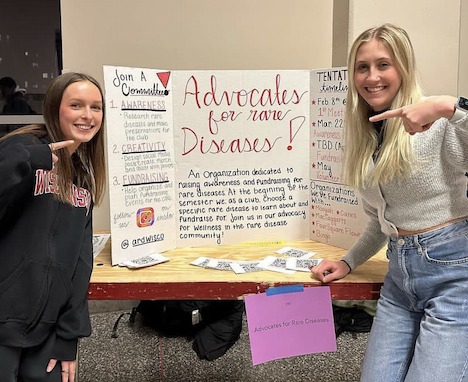 Join A
Committee
1. AWARENESS
- Research rare
diseases and make
presentations for
the club
2. CREATIVITY
- Design social media
3. FUNDRAISING
- Help organize
Fundraising
Events for the club
follow
us
@ardwisco
Advocates
for rare
Diseases!
An Organization dedicated to
raising awareness and fundraising
for rare diseases. At the beginning of the
semester we, as a club, choose a
specific rare disease to learn about and
fundraise for. Join us in our advocacy
for wellness in the rare disease
community!
Tentative
timeline
Feb 8th
1st Me
Mar 22
TBD (A
May
Organizations
We've Fundraised
With:
Advocates for Rare Diseases
WIS